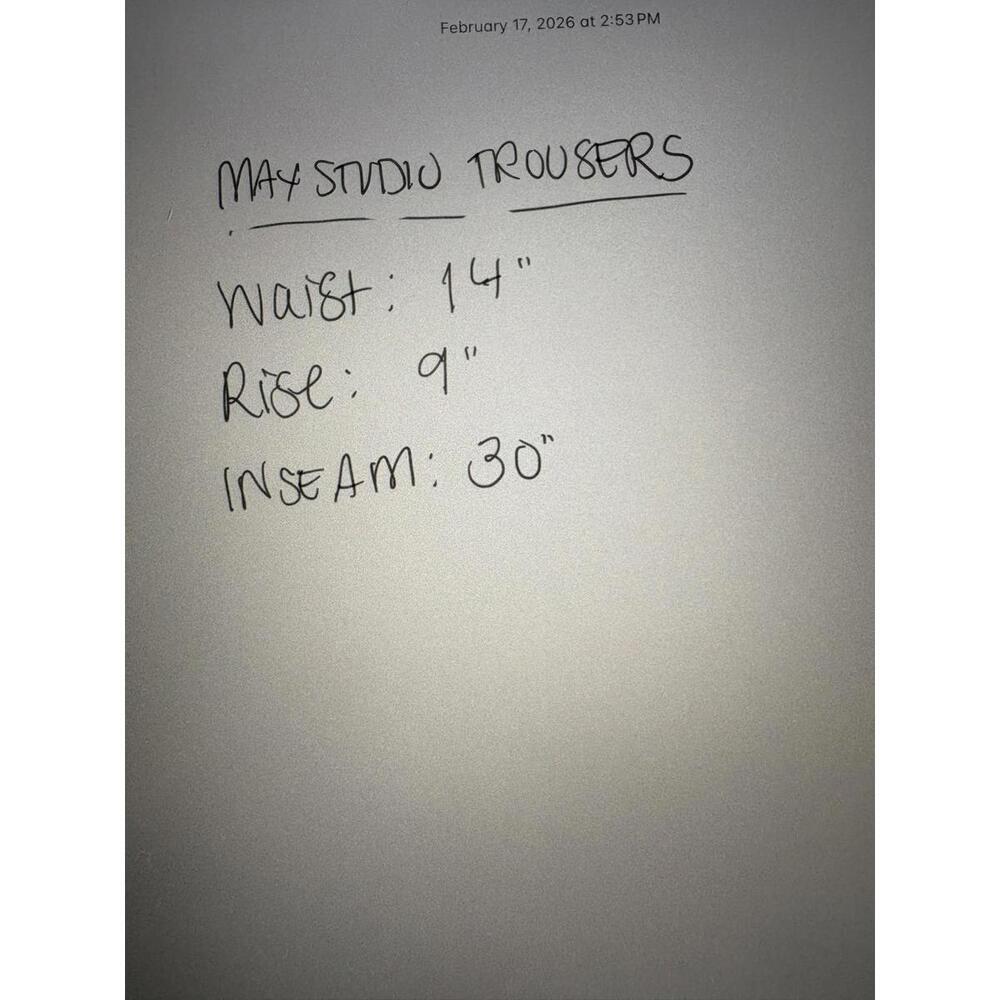 February 17, 2026 at 2:53 PM
MAX STUDIO TROUSERS
Waist: 14"
Rise: 9"
INSEAM: 30"